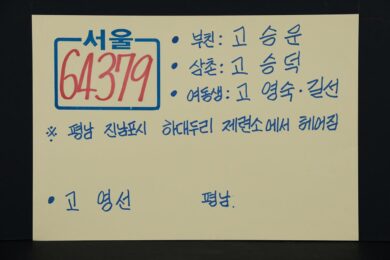 서울
64379
• 부친: 고 승운
• 삼촌: 고 승덕
• 여동생: 고 영숙·길선
※ 평남 진남포시 하대두리 제련소에서 헤어짐
• 고 영선 평남.